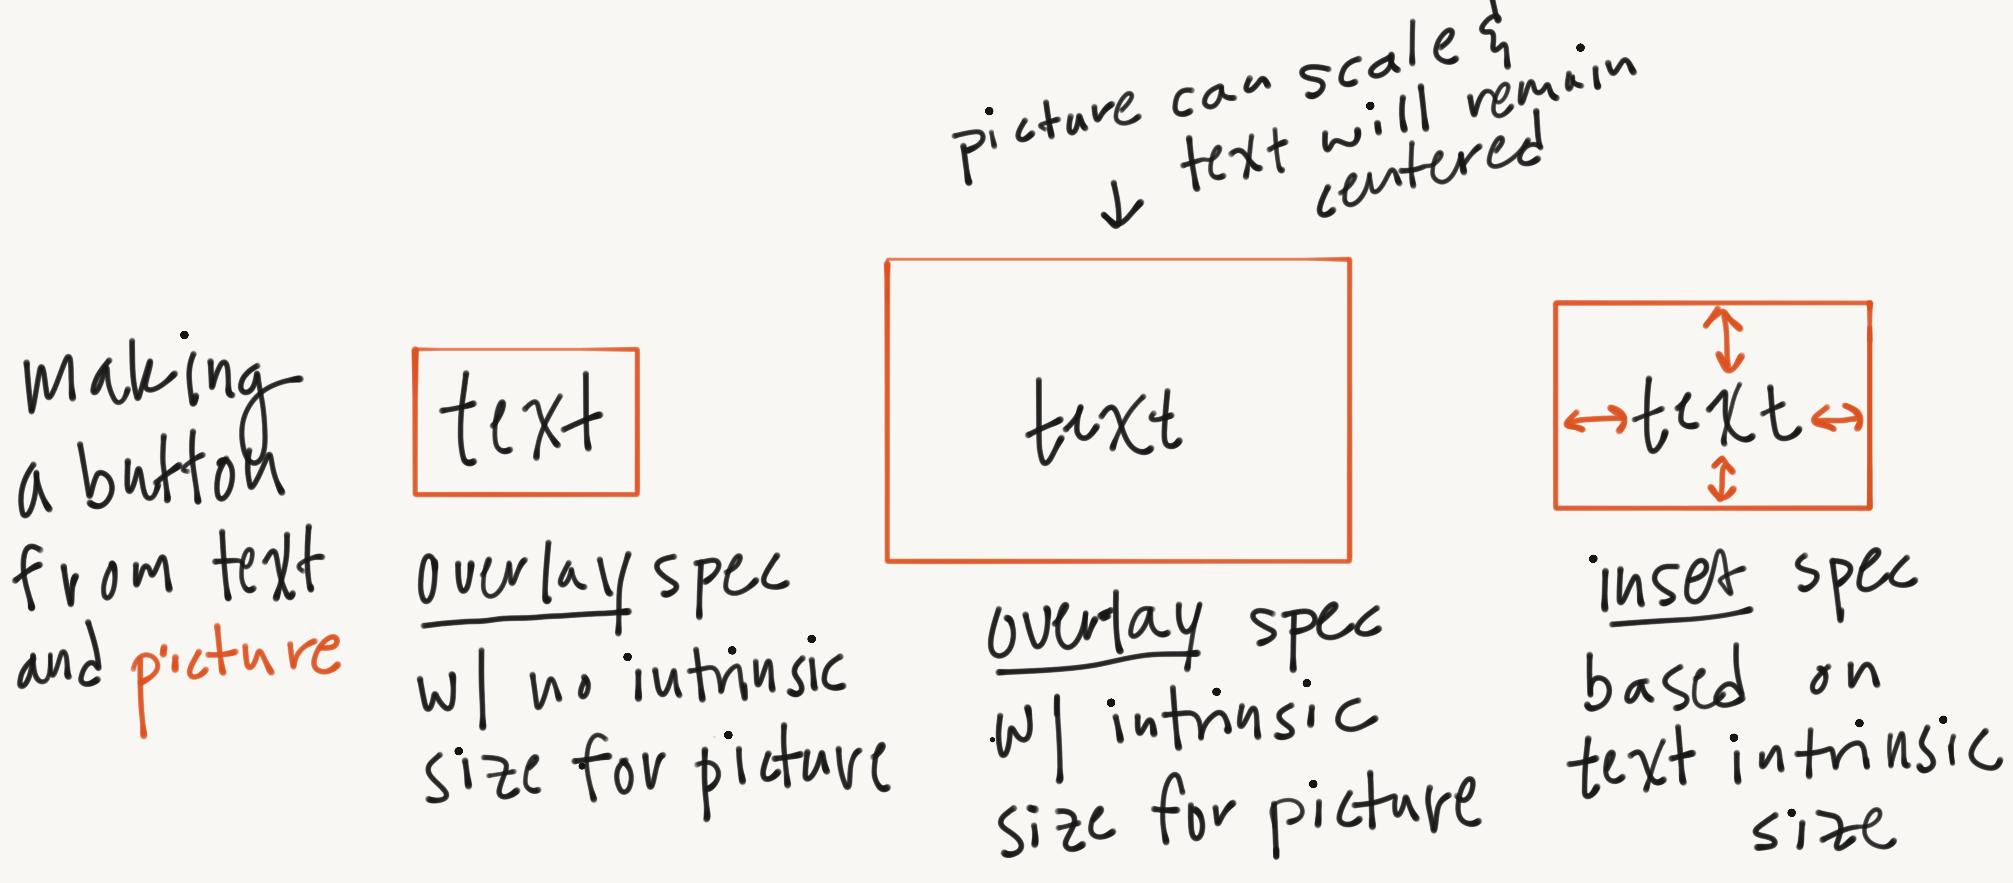 making
a button
from text
and picture
text
overlay spec
w/ no intrinsic
size for picture
picture can scale &
text will remain
centered
text
overlay spec
w/ intrinsic
size for picture
text
inset spec
based on
text intrinsic
size